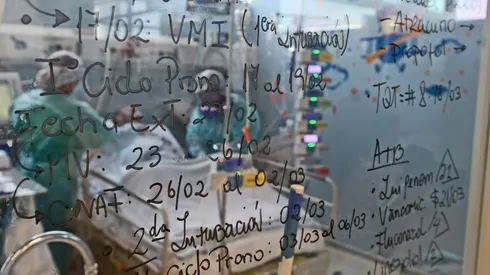 → 17/02: VMI (1era Intubación)
1º Ciclo Prono: 17 al 19/02
Fecha Ext:
MV: 23 26/02
CNAF: 26/02 al 02/03
2da Intubación: 02/03
Ciclo Prono: 03/03 al 06/03
- Atracurio →
- Propofol →
TQT: #8
ATB
• Imipenem
• Vancomic
• Fluconazol